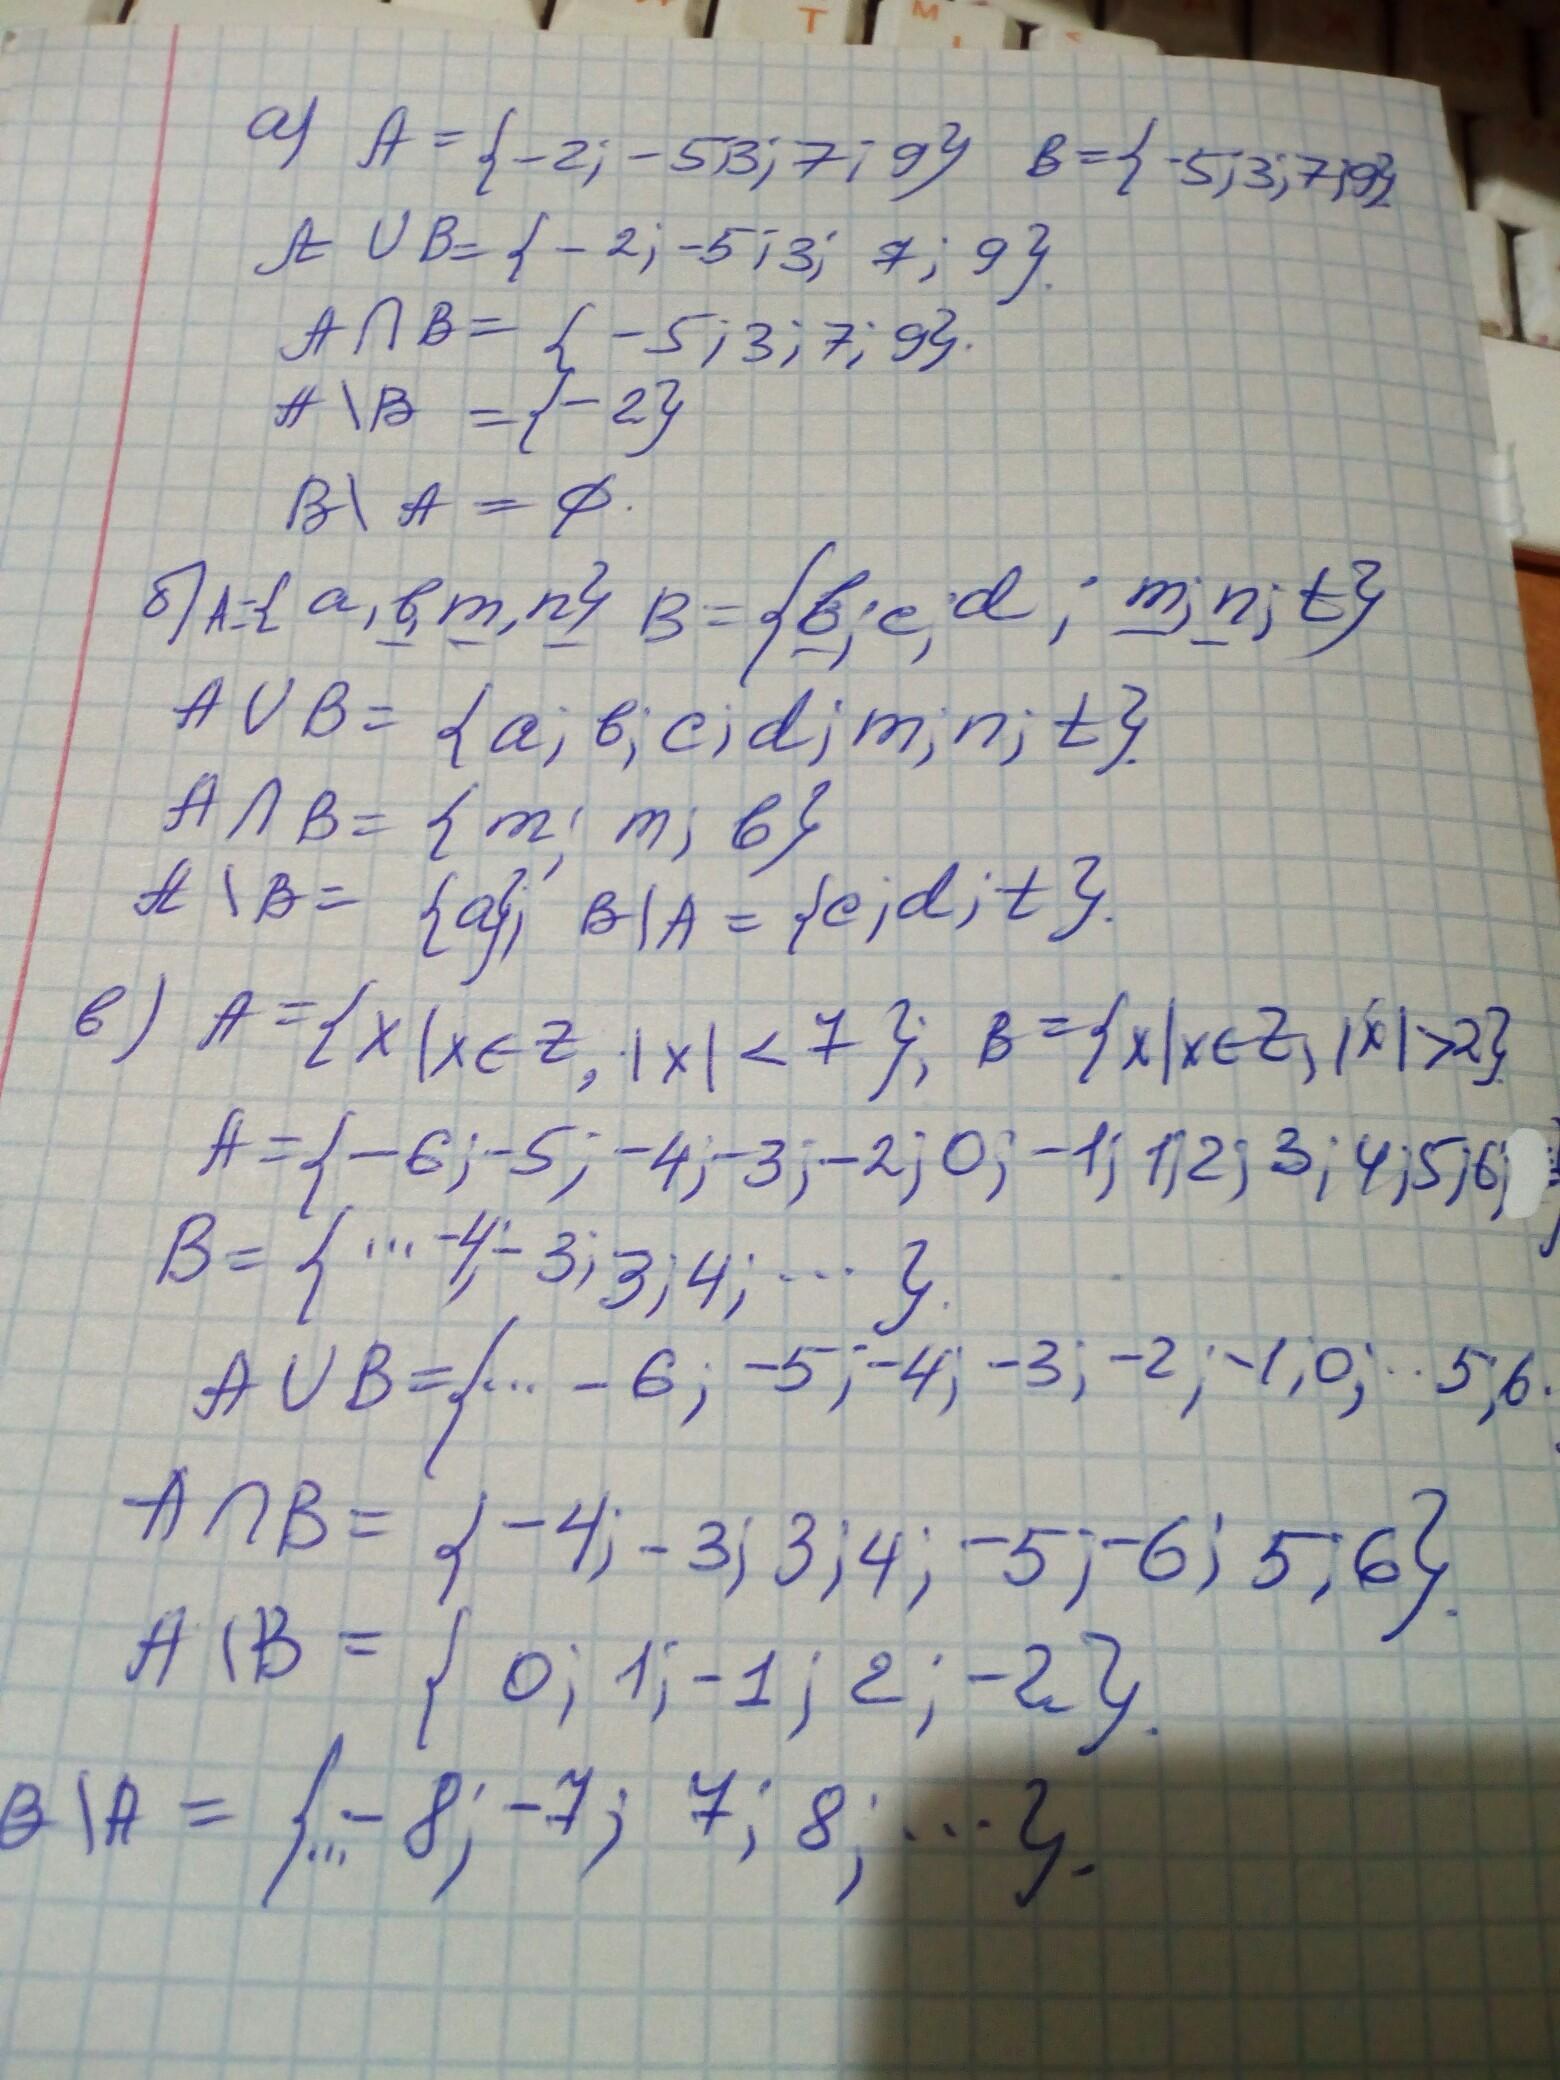 Т М
а) A = {-2; -5;3; 7; 9} B = {-5; 3; 7; 9}
A ∪ B = {-2; -5; 3; 7; 9}.
A ∩ B = {-5; 3; 7; 9}.
A \ B = {-2}
B \ A = ∅.
б) A = {a, b, m, n} B = {b; c; d; m; n; t}
A ∪ B = {a; b; c; d; m; n; t}.
A ∩ B = {n; m; b}
A \ B = {a}; B \ A = {c; d; t}.
в) A = {x | x ∈ Z, |x| < 7}; B = {x | x ∈ Z, |x| > 2}
A = {-6; -5; -4; -3; -2; 0; -1; 1; 2; 3; 4; 5; 6; }
B = {... -4; -3; 3; 4; ... }.
A ∪ B = {... -6; -5; -4; -3; -2; -1; 0; ... 5; 6.
A ∩ B = {-4; -3; 3; 4; -5; -6; 5; 6}.
A \ B = {0; 1; -1; 2; -2}.
B \ A = {... -8; -7; 7; 8; ...}.